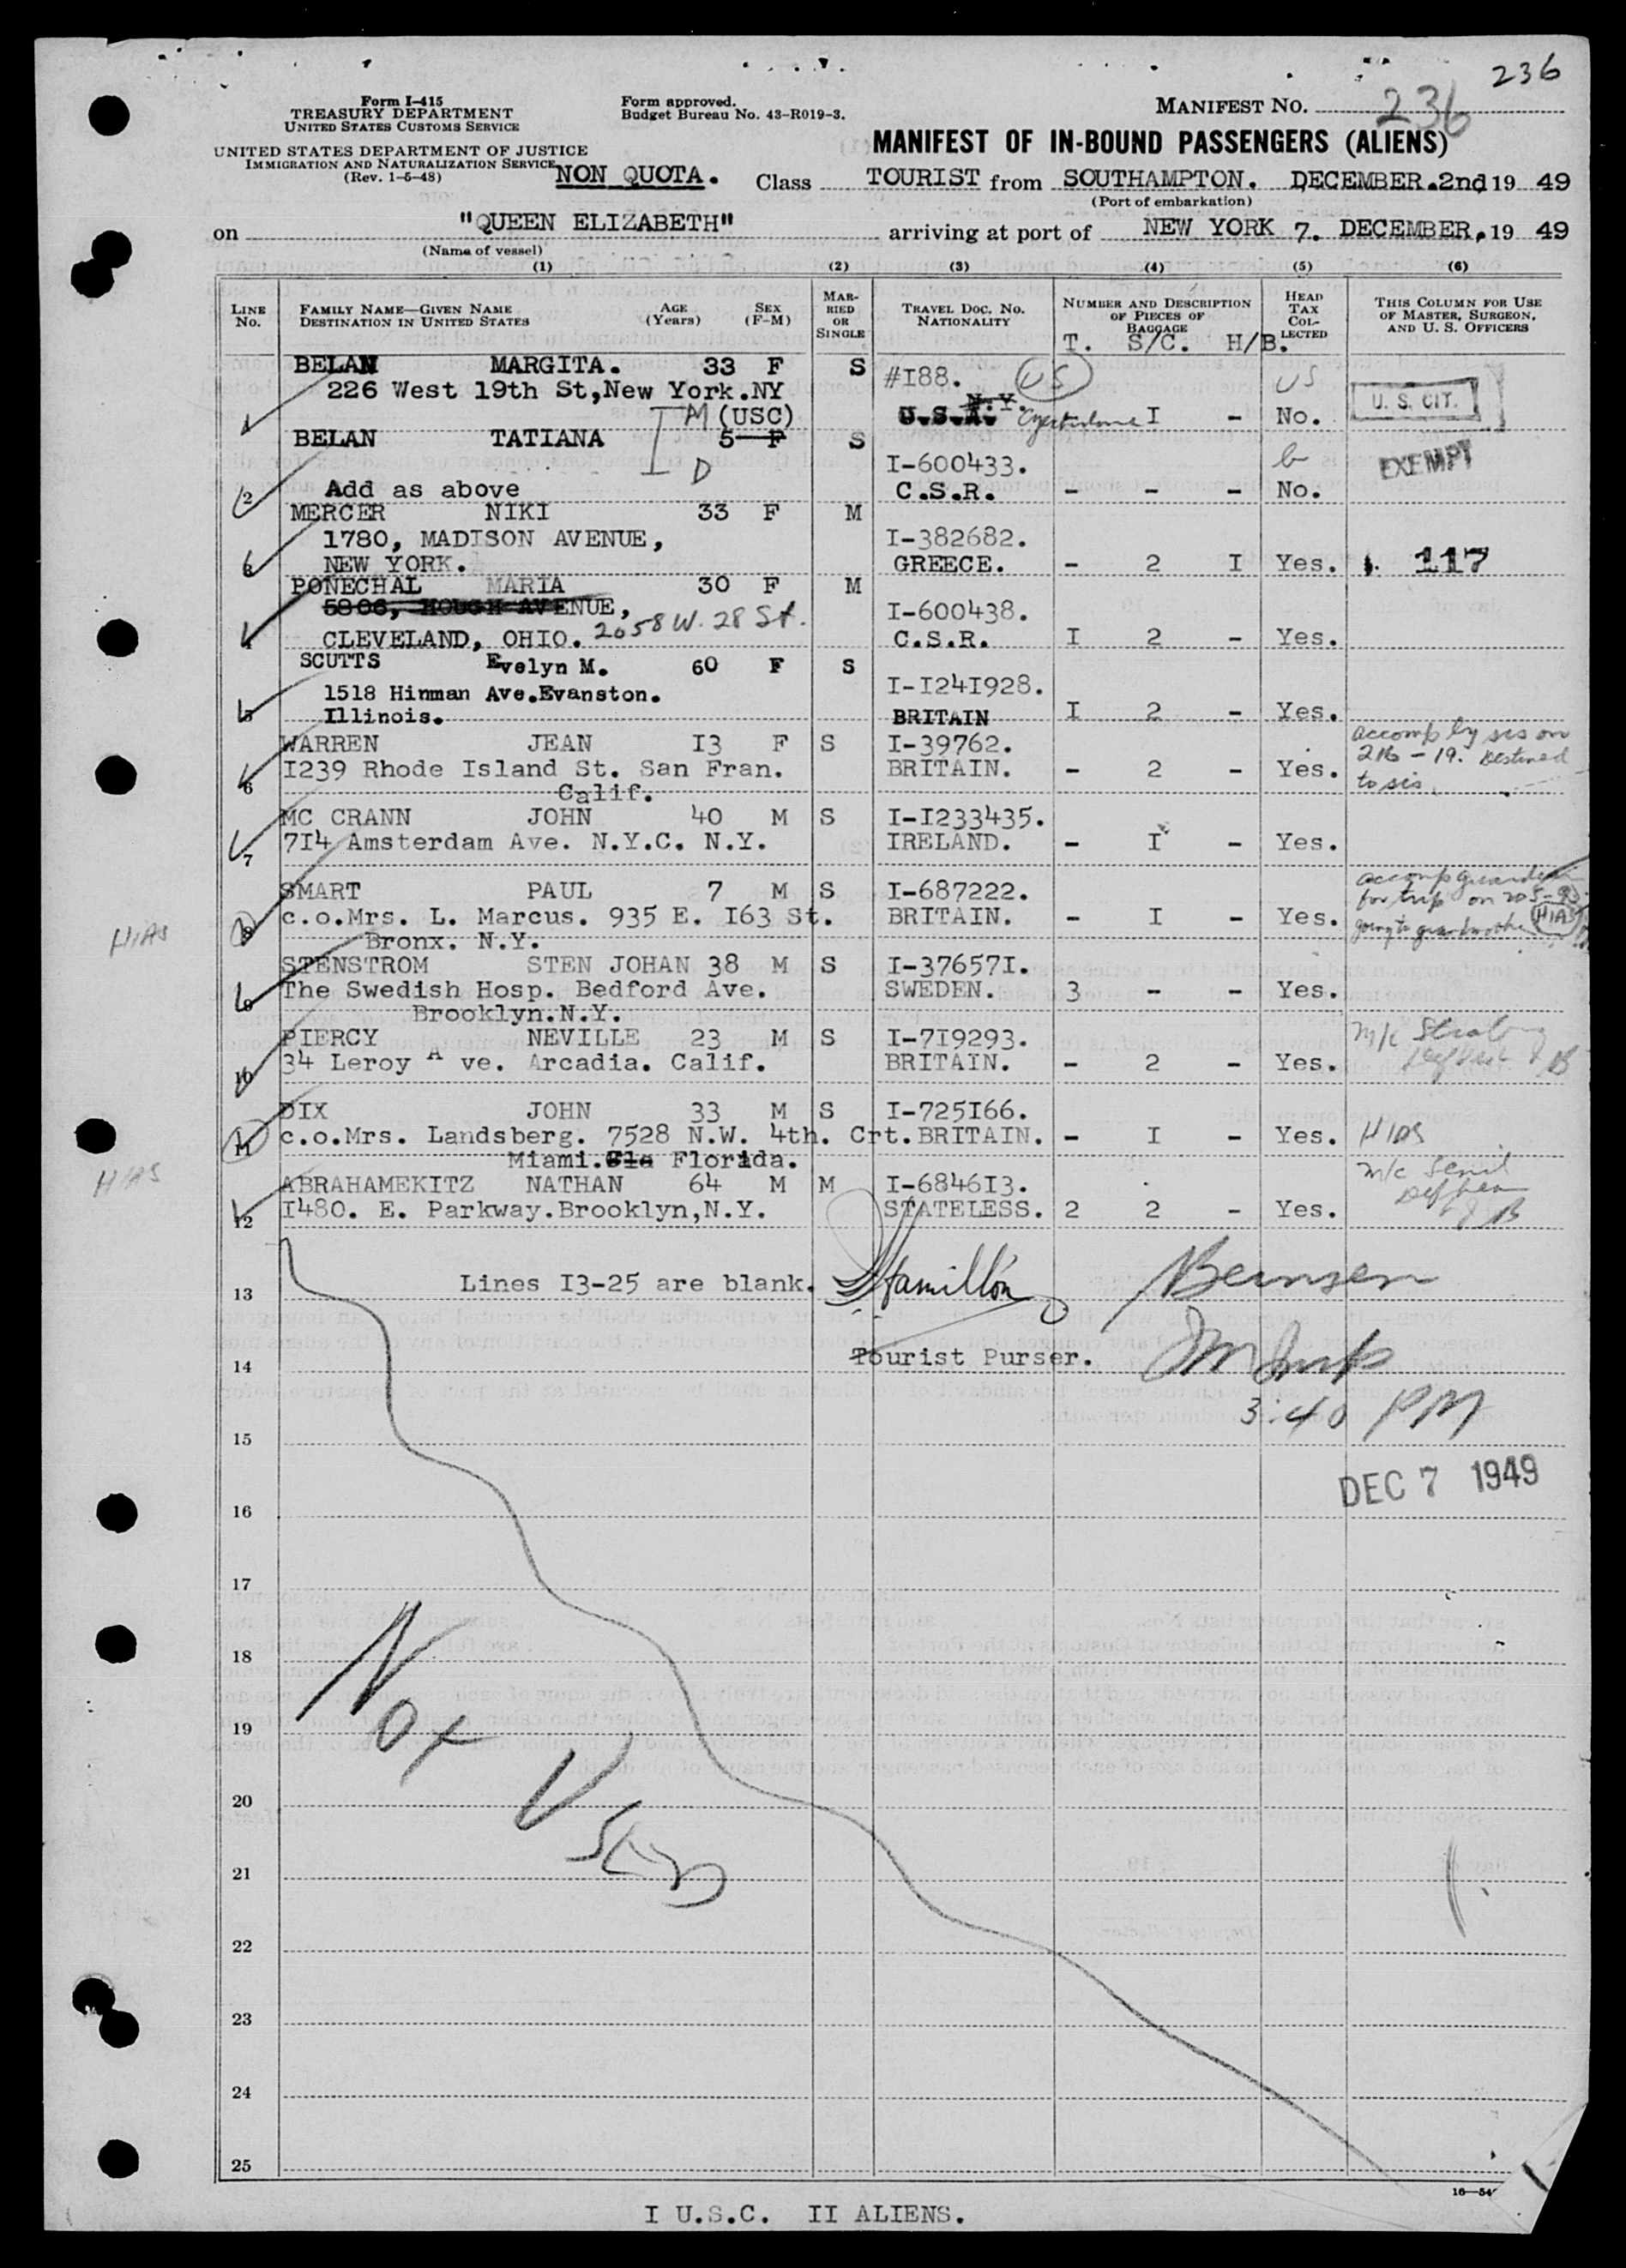 236
Form I-415
TREASURY DEPARTMENT
UNITED STATES CUSTOMS SERVICE
UNITED STATES DEPARTMENT OF JUSTICE
IMMIGRATION AND NATURALIZATION SERVICE
(Rev. 1-5-48)
Form approved.
Budget Bureau No. 43-R019-3.
MANIFEST NO. 236
MANIFEST OF IN-BOUND PASSENGERS (ALIENS)
NON QUOTA. Class TOURIST from SOUTHAMPTON. DECEMBER.2nd 19 49
(Port of embarkation)
on "QUEEN ELIZABETH" arriving at port of NEW YORK 7. DECEMBER, 19 49
(Name of vessel)
(1) (2) (3) (4) (5) (6)
LINE No. FAMILY NAME—GIVEN NAME DESTINATION IN UNITED STATES AGE (Years) SEX (F-M) MARRIED OR SINGLE TRAVEL DOC. NO. NATIONALITY NUMBER AND DESCRIPTION OF PIECES OF BAGGAGE HEAD TAX COLLECTED THIS COLUMN FOR USE OF MASTER, SURGEON, AND U. S. OFFICERS
T. S/C. H/B.
BELAN MARGITA. 33 F S #I88. US US
226 West 19th St,New York.NY U. S. CIT.
1 M (USC) U.S.A. I - No.
BELAN TATIANA 5 F S
D I-600433. EXEMPT
2 Add as above C.S.R. - - - No.
MERCER NIKI 33 F M
1780, MADISON AVENUE, I-382682.
NEW YORK. GREECE. - 2 I Yes. 117
PONECHAL MARIA 30 F M
5806, HOUGH AVENUE, I-600438.
4 CLEVELAND, OHIO. 2058 W. 28 St. C.S.R. I 2 - Yes.
SCUTTS Evelyn M. 60 F S
1518 Hinman Ave.Evanston. I-I24I928.
5 Illinois. BRITAIN I 2 - Yes.
WARREN JEAN I3 F S I-39762. accomp by sis on
I239 Rhode Island St. San Fran. BRITAIN. - 2 - Yes. 216 - 19. Destined
6 Calif. to sis.
MC CRANN JOHN 40 M S I-I233435.
7 7I4 Amsterdam Ave. N.Y.C. N.Y. IRELAND. - I - Yes.
SMART PAUL 7 M S I-687222. accomp guardian
HIAS 8 c.o.Mrs. L. Marcus. 935 E. I63 St. BRITAIN. - I - Yes. for trip on
Bronx. N.Y. going to grandmother HIAS
STENSTROM STEN JOHAN 38 M S I-37657I.
9 The Swedish Hosp. Bedford Ave. SWEDEN. 3 - - Yes.
Brooklyn.N.Y.
PIERCY NEVILLE 23 M S I-7I9293. m/c
10 34 Leroy A ve. Arcadia. Calif. BRITAIN. - 2 - Yes.
DIX JOHN 33 M S I-725I66.
11 c.o.Mrs. Landsberg. 7528 N.W. 4th. Crt. BRITAIN. - I - Yes. HIAS
HIAS Miami.Fla Florida.
ABRAHAMEKITZ NATHAN 64 M M I-6846I3. m/c Senil
12 I480. E. Parkway.Brooklyn,N.Y. STATELESS. 2 2 - Yes.
13 Lines I3-25 are blank. Hamilton
14 Tourist Purser.
3:40 PM
15
DEC 7 1949
16
17
18
Not
19
20
Used
21
22
23
24
25
I U.S.C. II ALIENS.